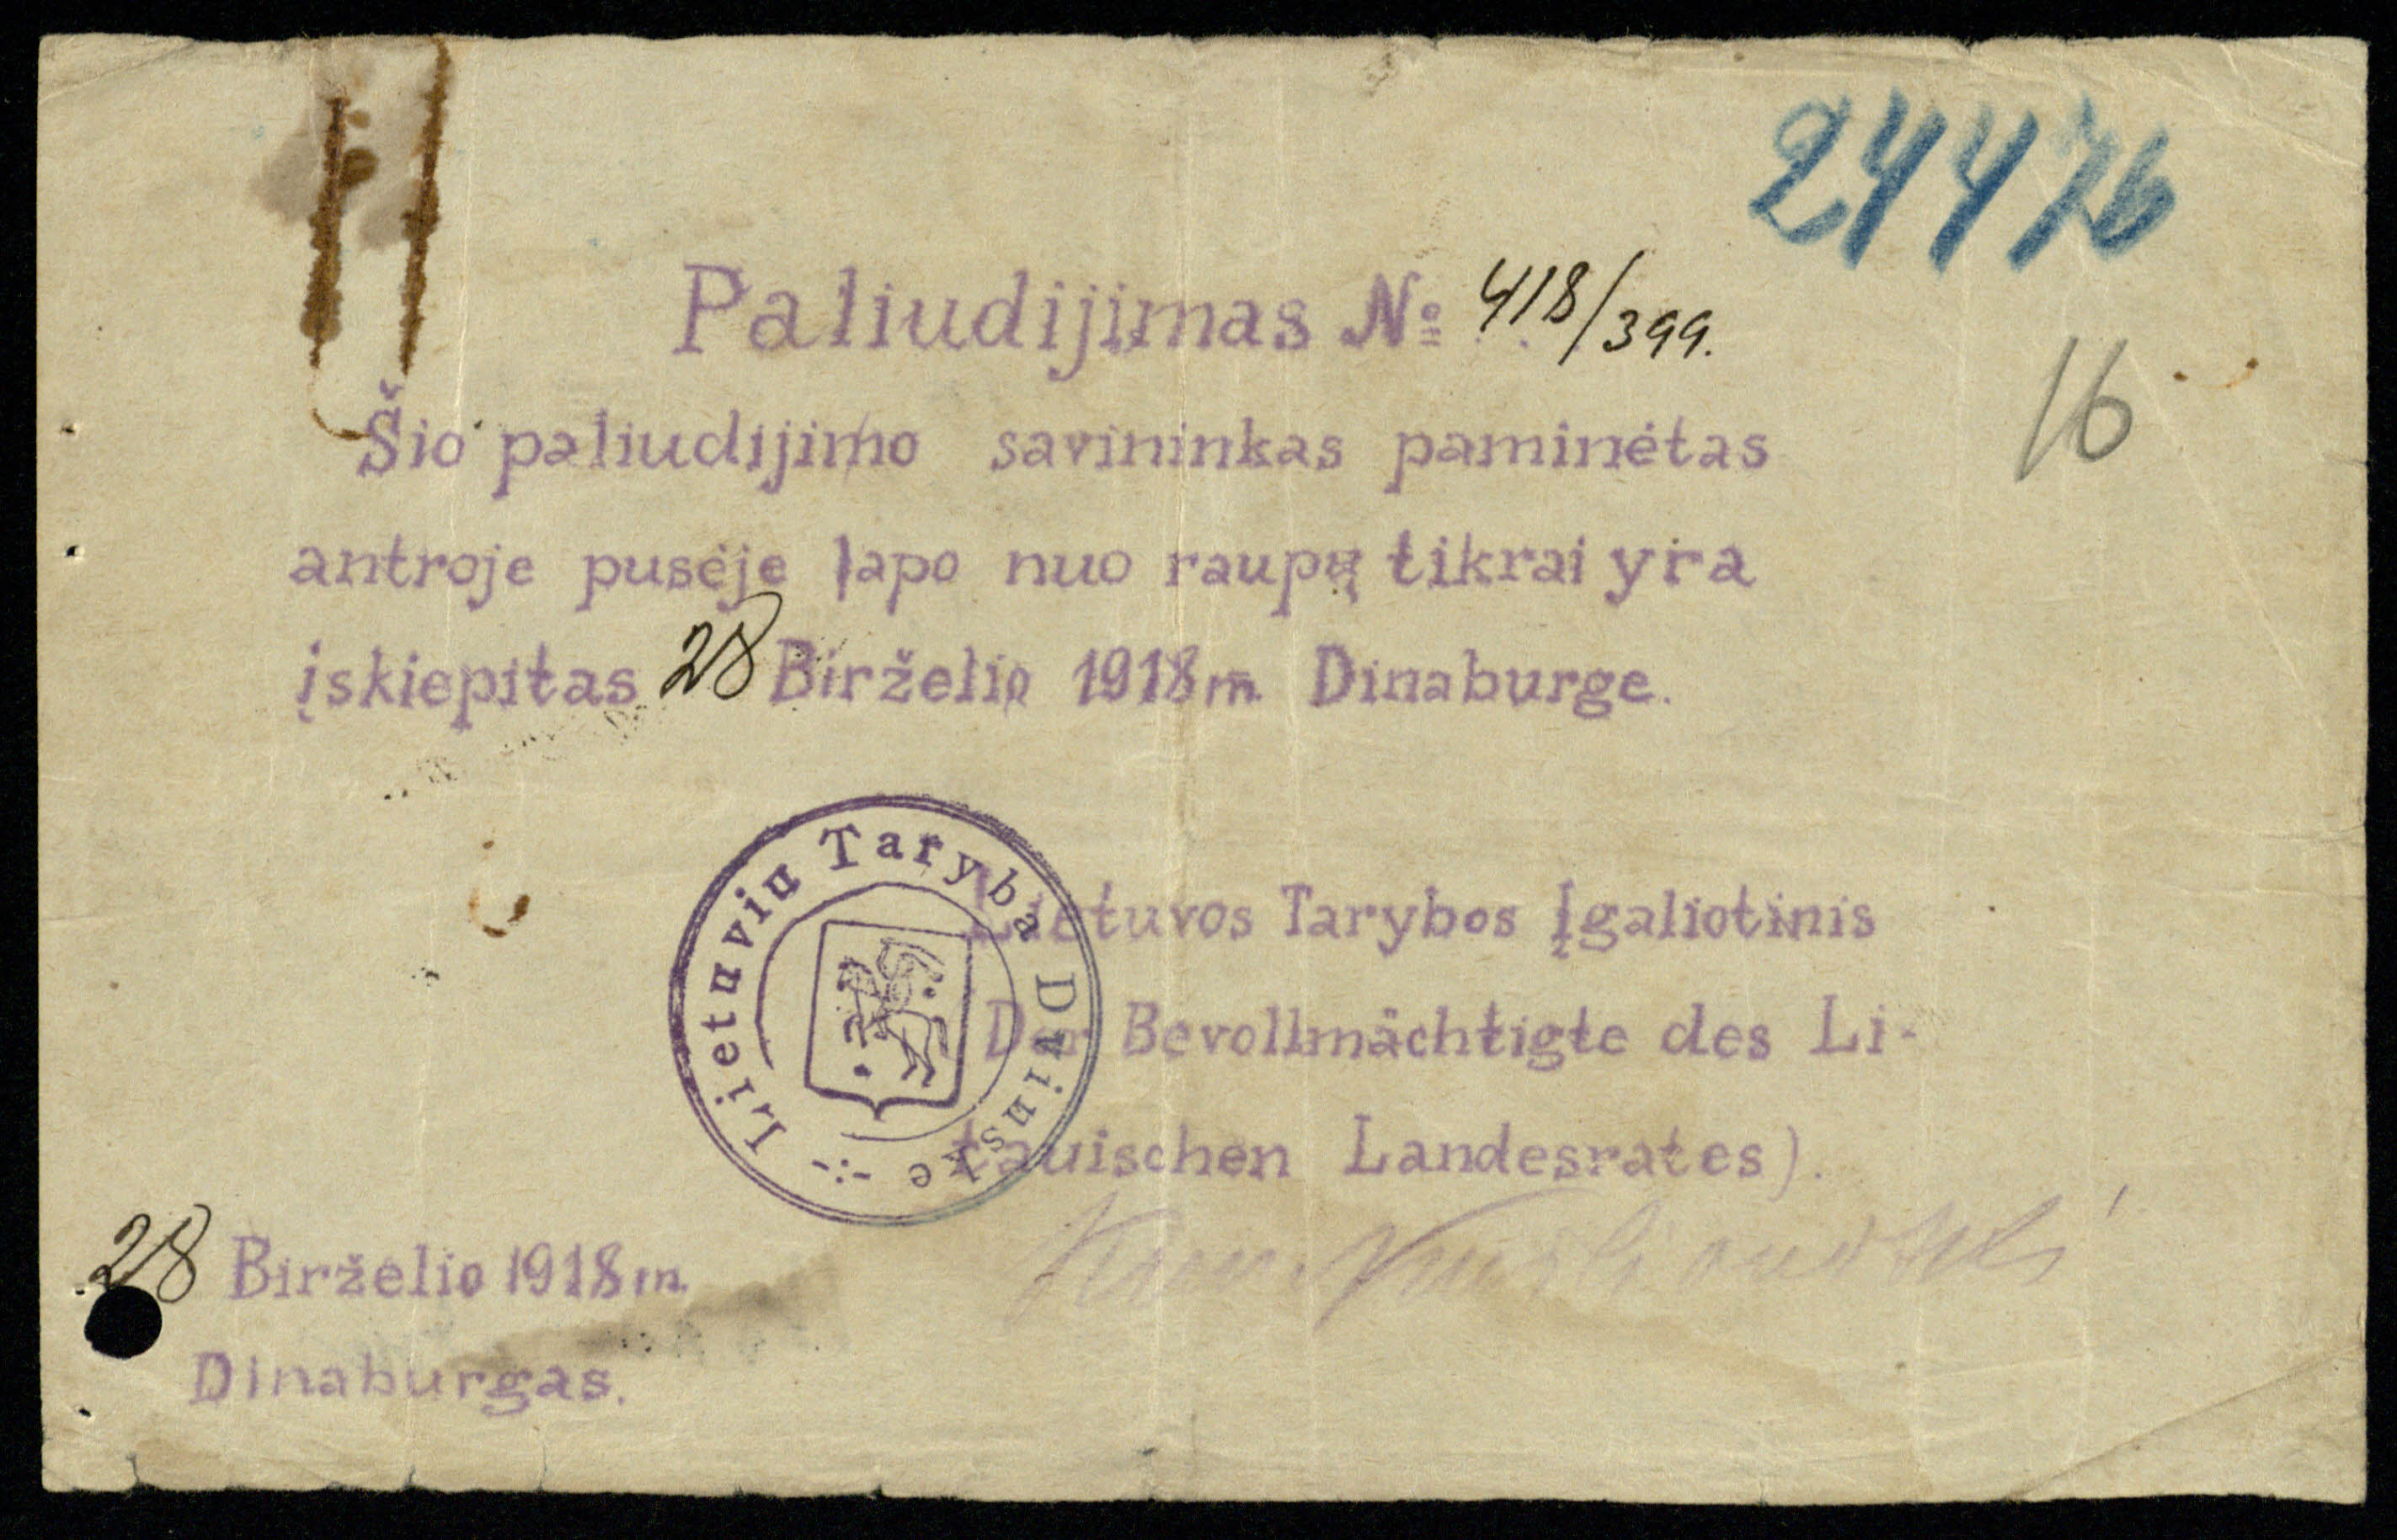 24476
Paliudijimas № 418/399.
16
Šio paliudijimo savininkas paminėtas
antroje pusėje lapo nuo raupų tikrai yra
įskiepitas 28 Birželio 1918 m. Dinaburge.
Lietuvių Taryba Dvinske
Lietuvos Tarybos Įgaliotinis
Der Bevollmächtigte des Li-
tauischen Landesrates).
28 Birželio 1918 m.
Dinaburgas.